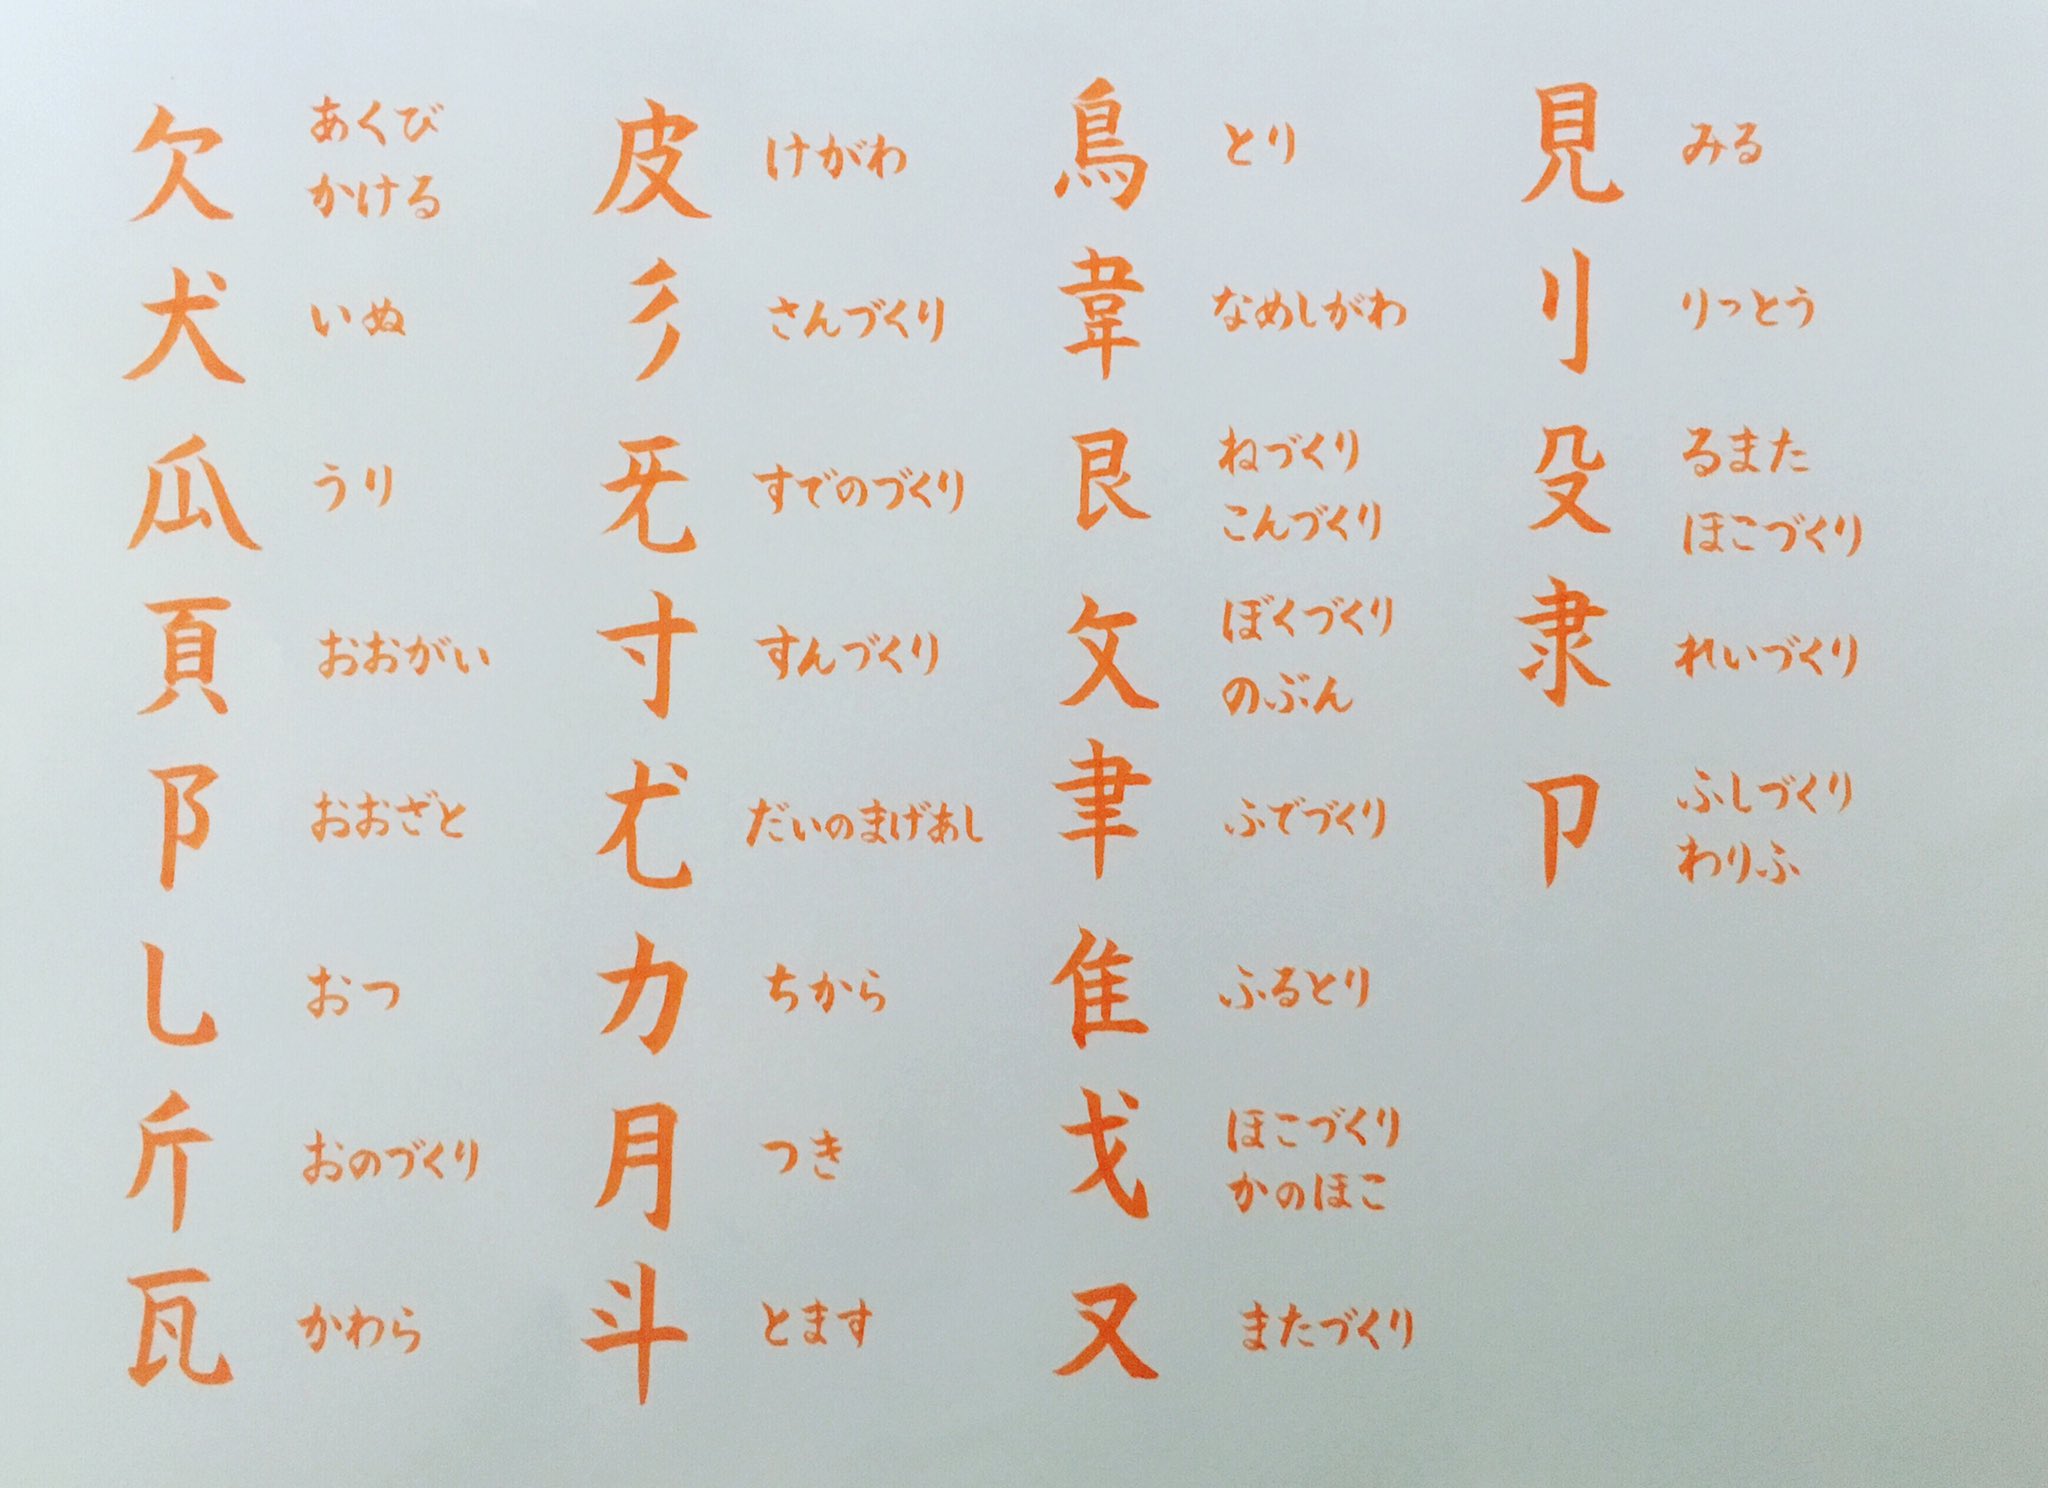 欠 あくび
かける
犬 いぬ
瓜 うり
頁 おおがい
阝 おおざと
乚 おつ
斤 おのづくり
瓦 かわら
皮 けがわ
彡 さんづくり
旡 すでのづくり
寸 すんづくり
尢 だいのまげあし
力 ちから
月 つき
斗 とます
鳥 とり
韋 なめしがわ
艮 ねづくり
こんづくり
攵 ぼくづくり
のぶん
聿 ふでづくり
隹 ふるとり
戈 ほこづくり
かのほこ
又 またづくり
見 みる
刂 りっとう
殳 るまた
ほこづくり
隶 れいづくり
卩 ふしづくり
わりふ